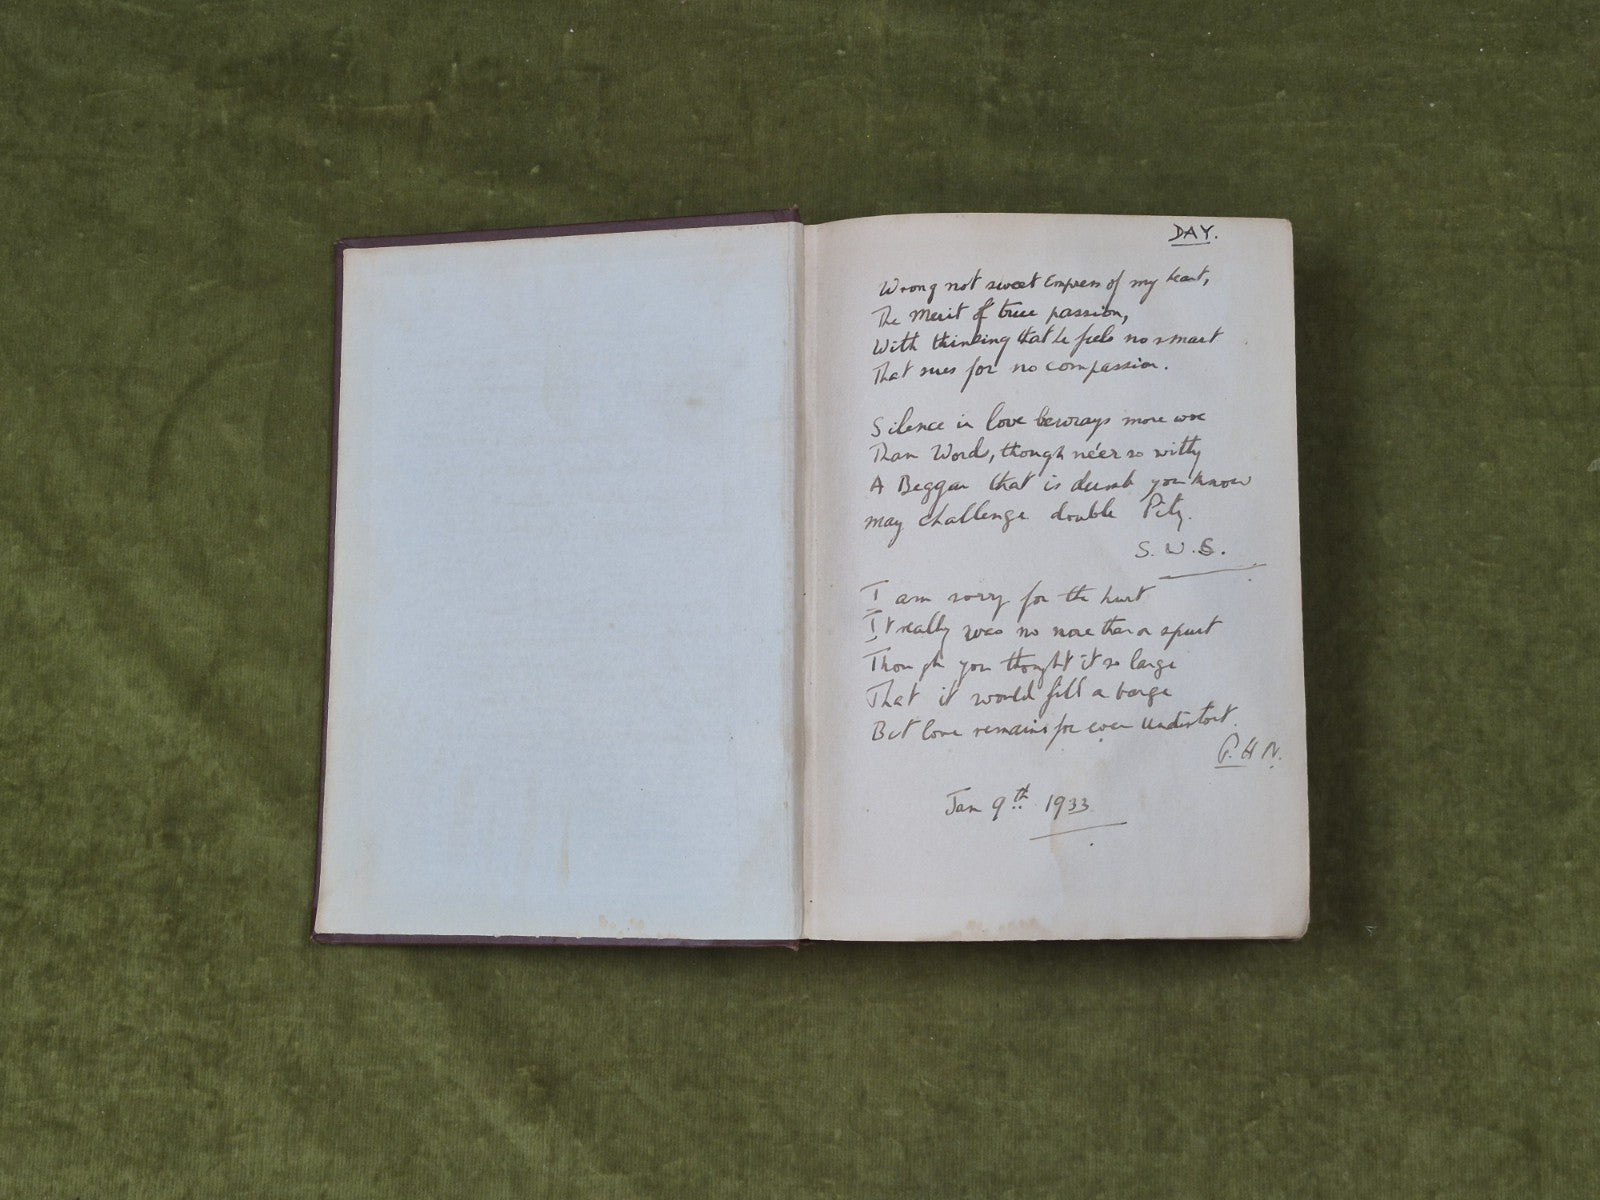 DAY.
Wrong not sweet Empress of my heart,
The Merit of true passion,
With thinking that he feels no smart
That sues for no compassion.
Silence in love bewrays more woe
Than Words, though né'er so witty
A Beggar that is dumb you know
may challenge double Pity.
S. W. S.
I am sorry for the hurt
It really was no more than a spurt
Though you thought it so large
That it would fill a barge
But love remains for ever Undistort.
P. H N.
Jan 9th 1933